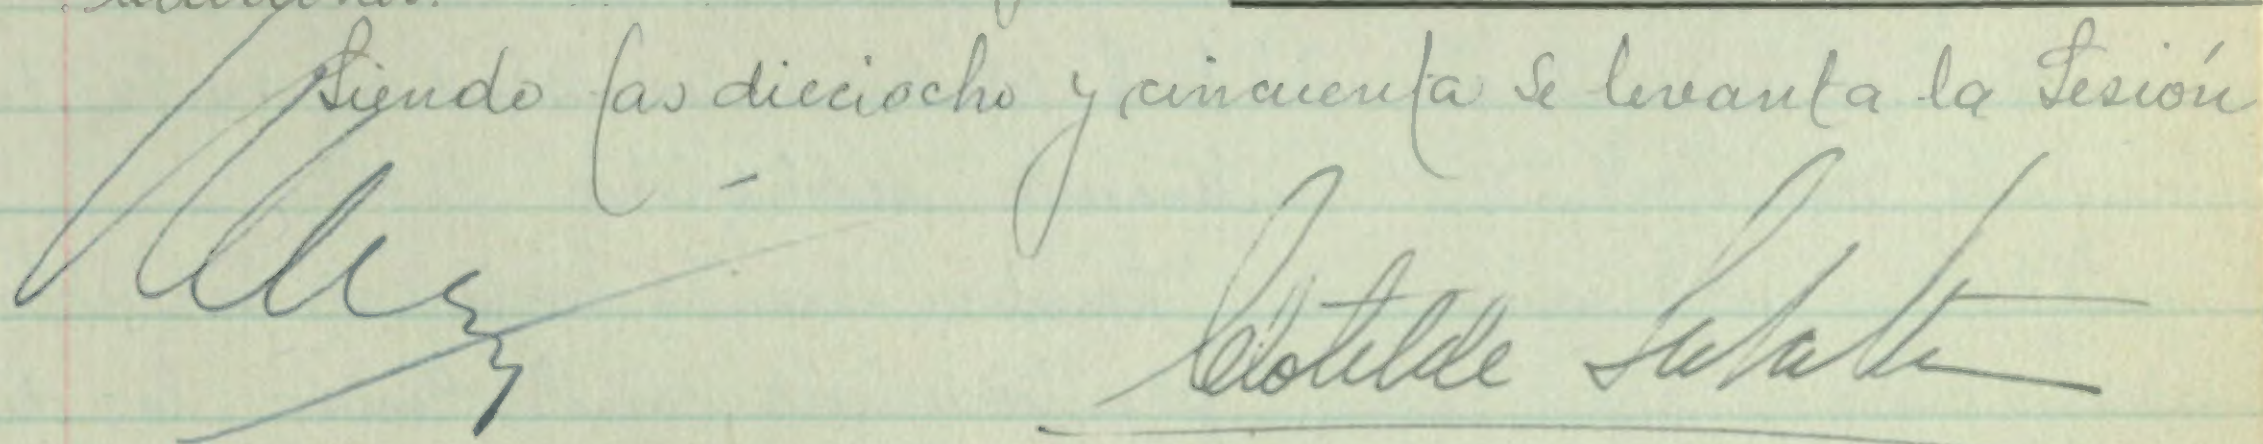 Siendo las dieciocho y cincuenta se levanta la Sesión
Clotilde